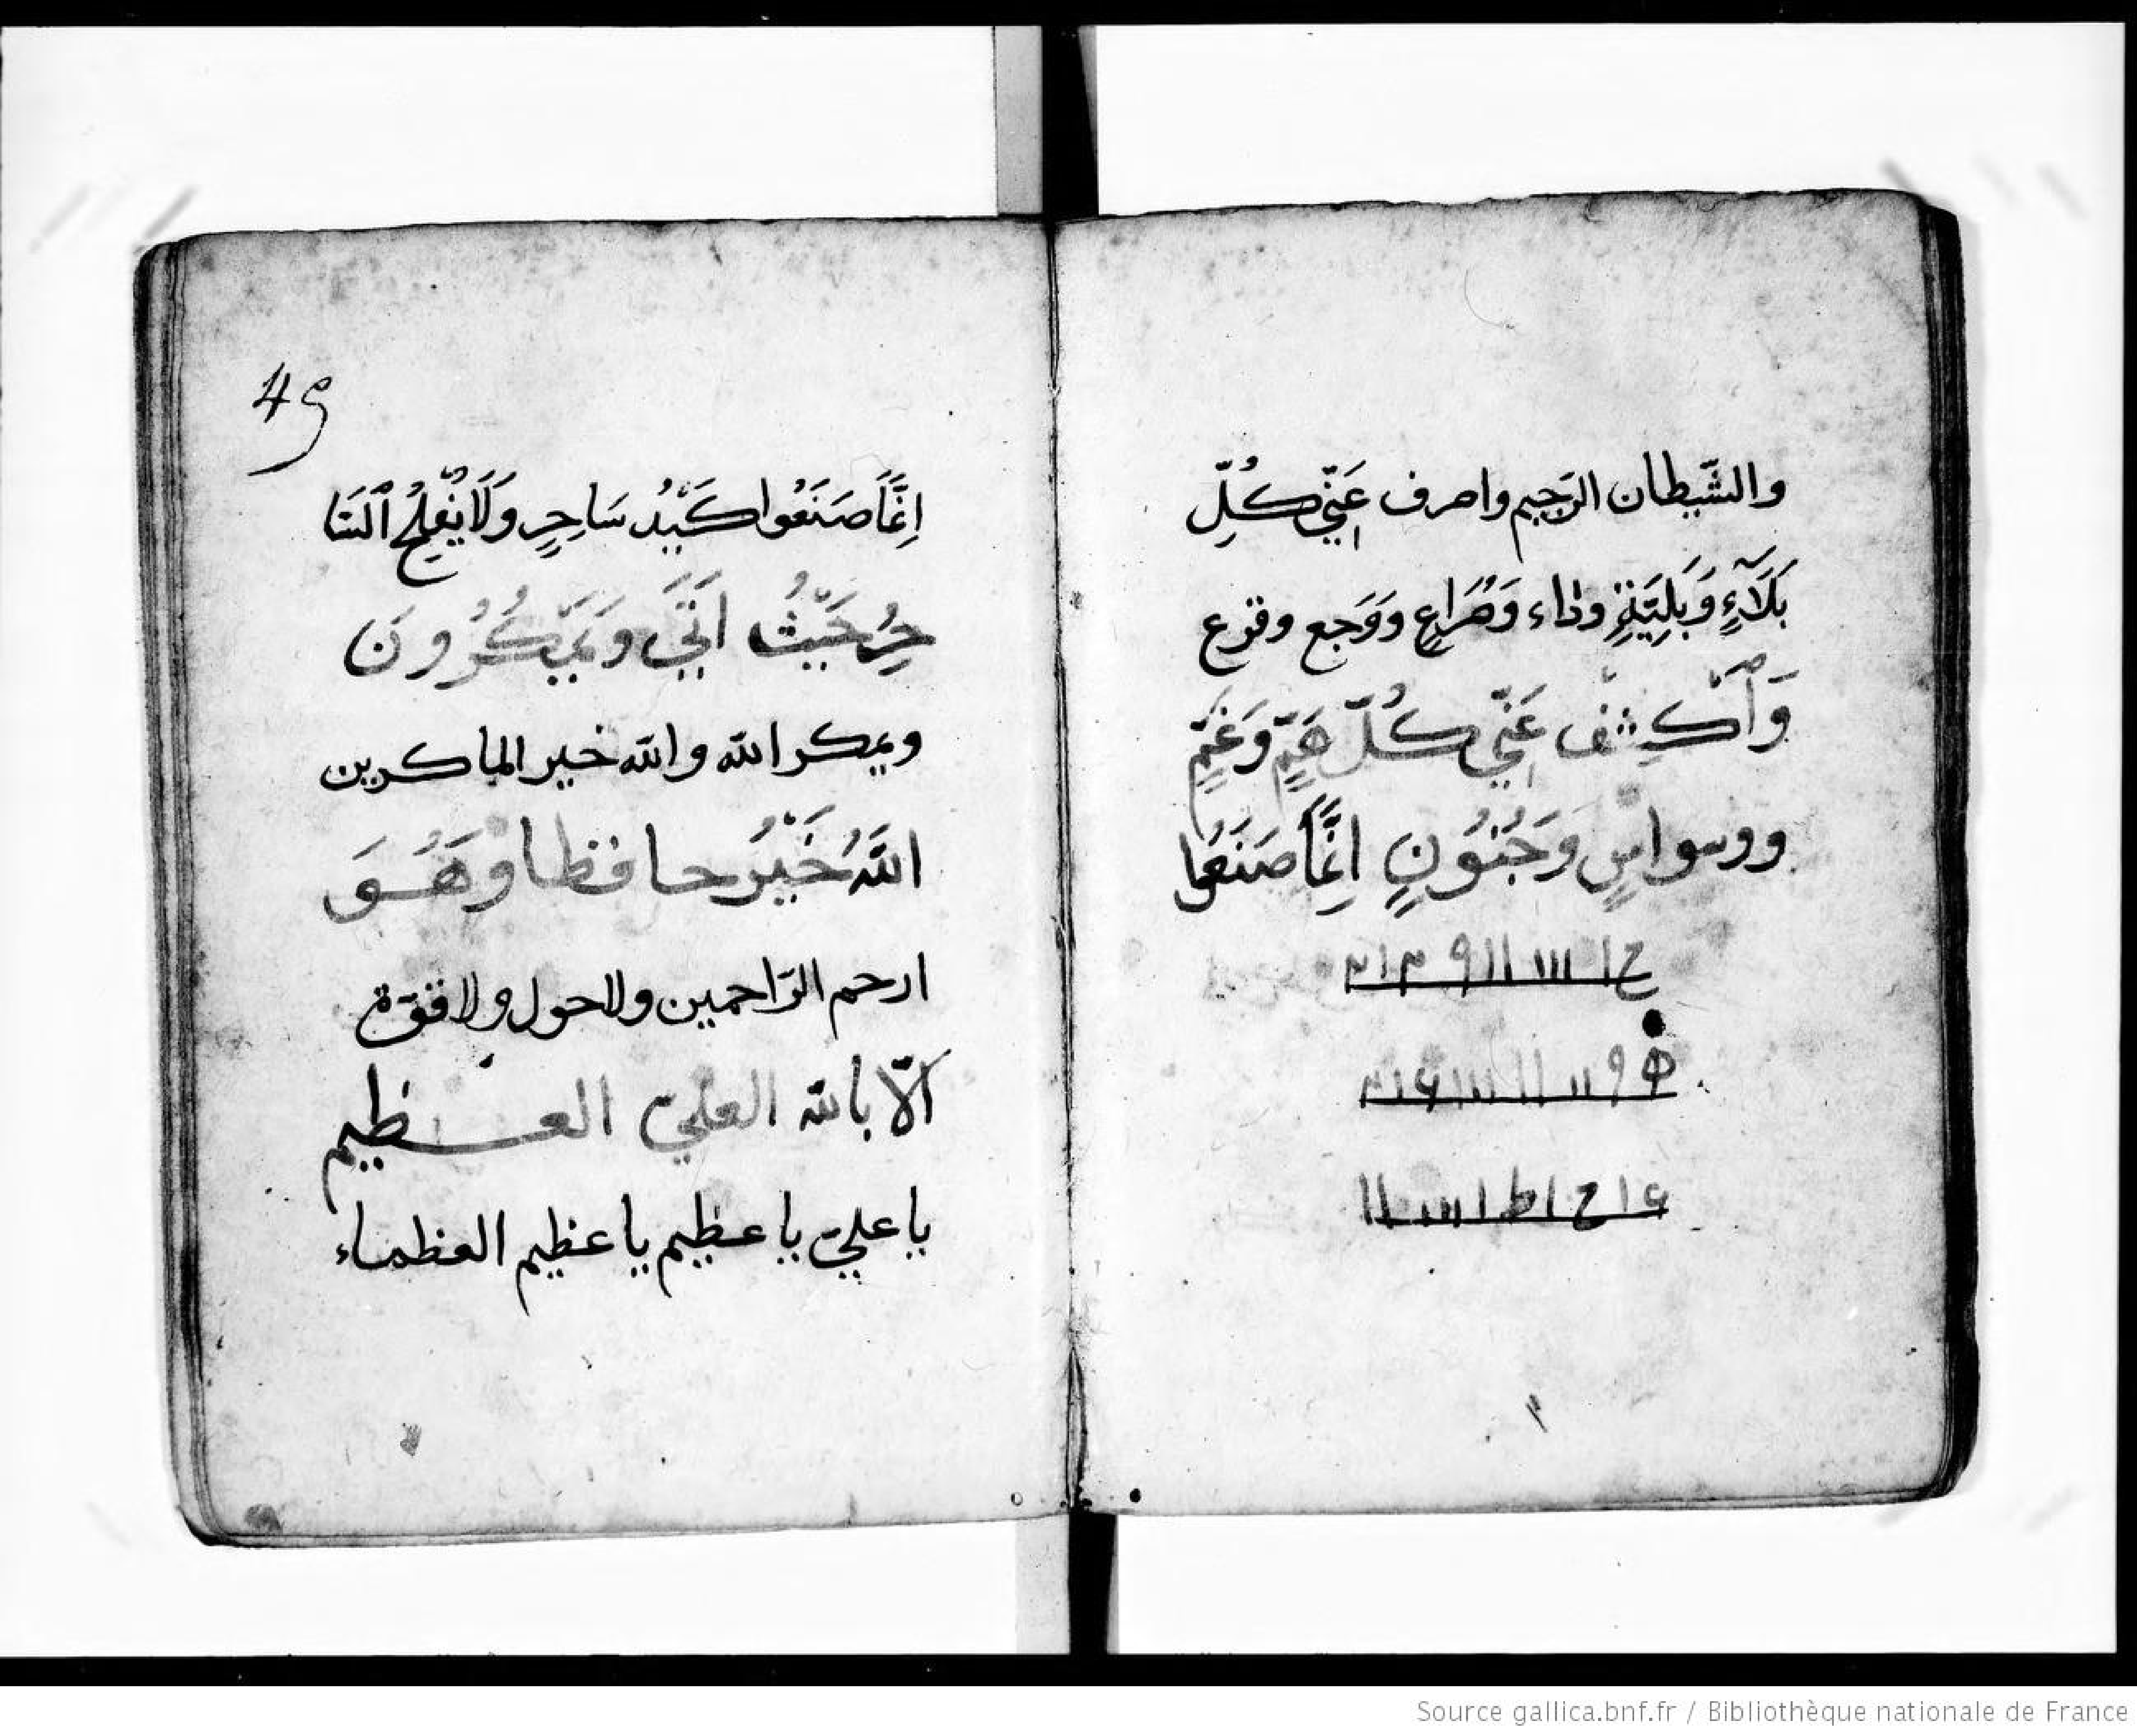 والشَّيطان الرَّجيم واصرف عَنِّي كُلِّ
بَلَآءٍ وَبَلِيَّةٍ وداء وَصُرَاعٍ وَوَجع وفزع
وَٱكْشِفْ عَنِّي كُلّ هَمٍّ وَغَمٍّ
ووسواسٍ وَجُنُونٍ اِنَّمَا صَنَعُوا
49
اِنَّمَا صَنَعُوا كَيْدُ سَاحِرٍ وَلَا يُفْلِحُ ٱلسَّا
حِرُ حَيْثُ اَتَىٰ وَيَمْكُرُونَ
ويمكر الله والله خير الماكرين
اللَّهُ خَيْرُ حافظا وَهُوَ
ارحم الرّاحمين ولا حول ولا قوّة
الّا بالله العليّ العظيم
يا عليّ يا عظيم يا عظيم العظماء
Source gallica.bnf.fr / Bibliothèque nationale de France